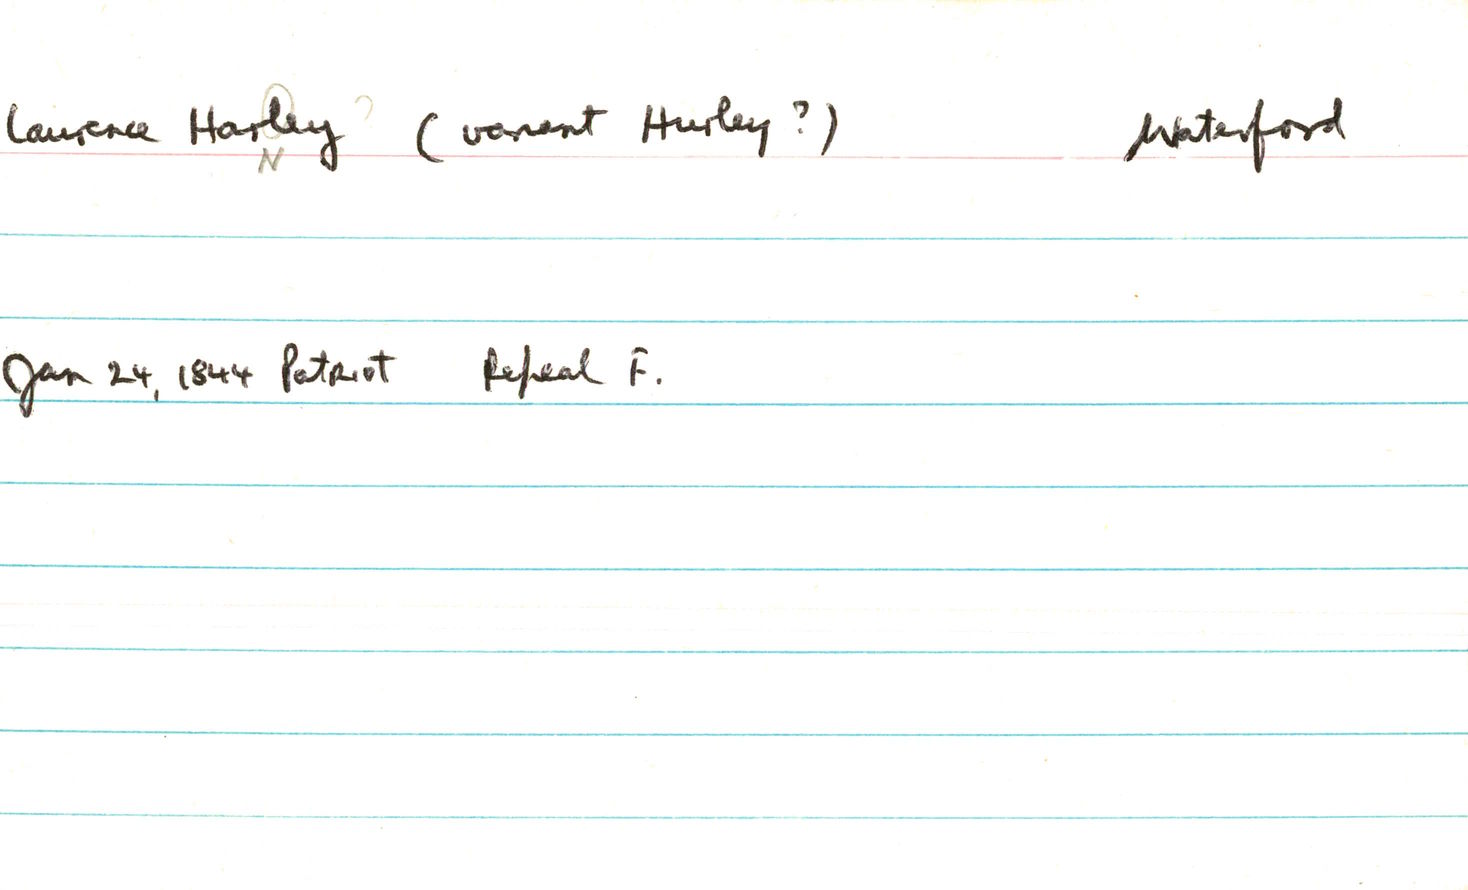 Laurence Harley ? (variant Hurley?) Waterford
N
Jan 24, 1844 Patriot Repeal F.